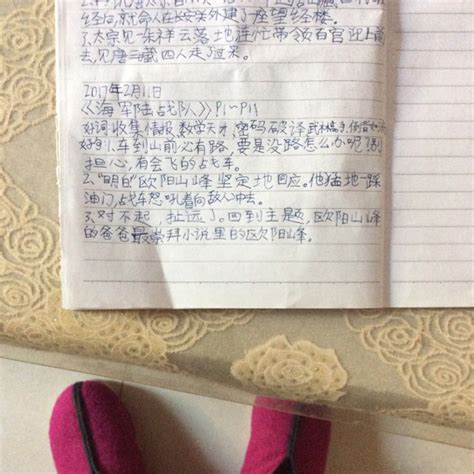 经后,就命人在长安头外建了座望经楼。
2.太宗见一朵祥云落地连忙带领百官迎上前
去,见唐三藏四人走了过来。
2017年2月11日
《海军陆战队》P1~P11
好词:收集情报、数学天才、密码破译、武林高手、倒背如流
好句1.车到山前必有路,要是没路怎么办呢?别
担心,有会飞的战车。
2."明白"欧阳山峰坚定地回应。他猛地一踩
油门,战车怒吼着向敌人冲去。
3.对不起,扯远了。回到主题,欧阳山峰
的爸爸最崇拜小说里的欧阳峰。